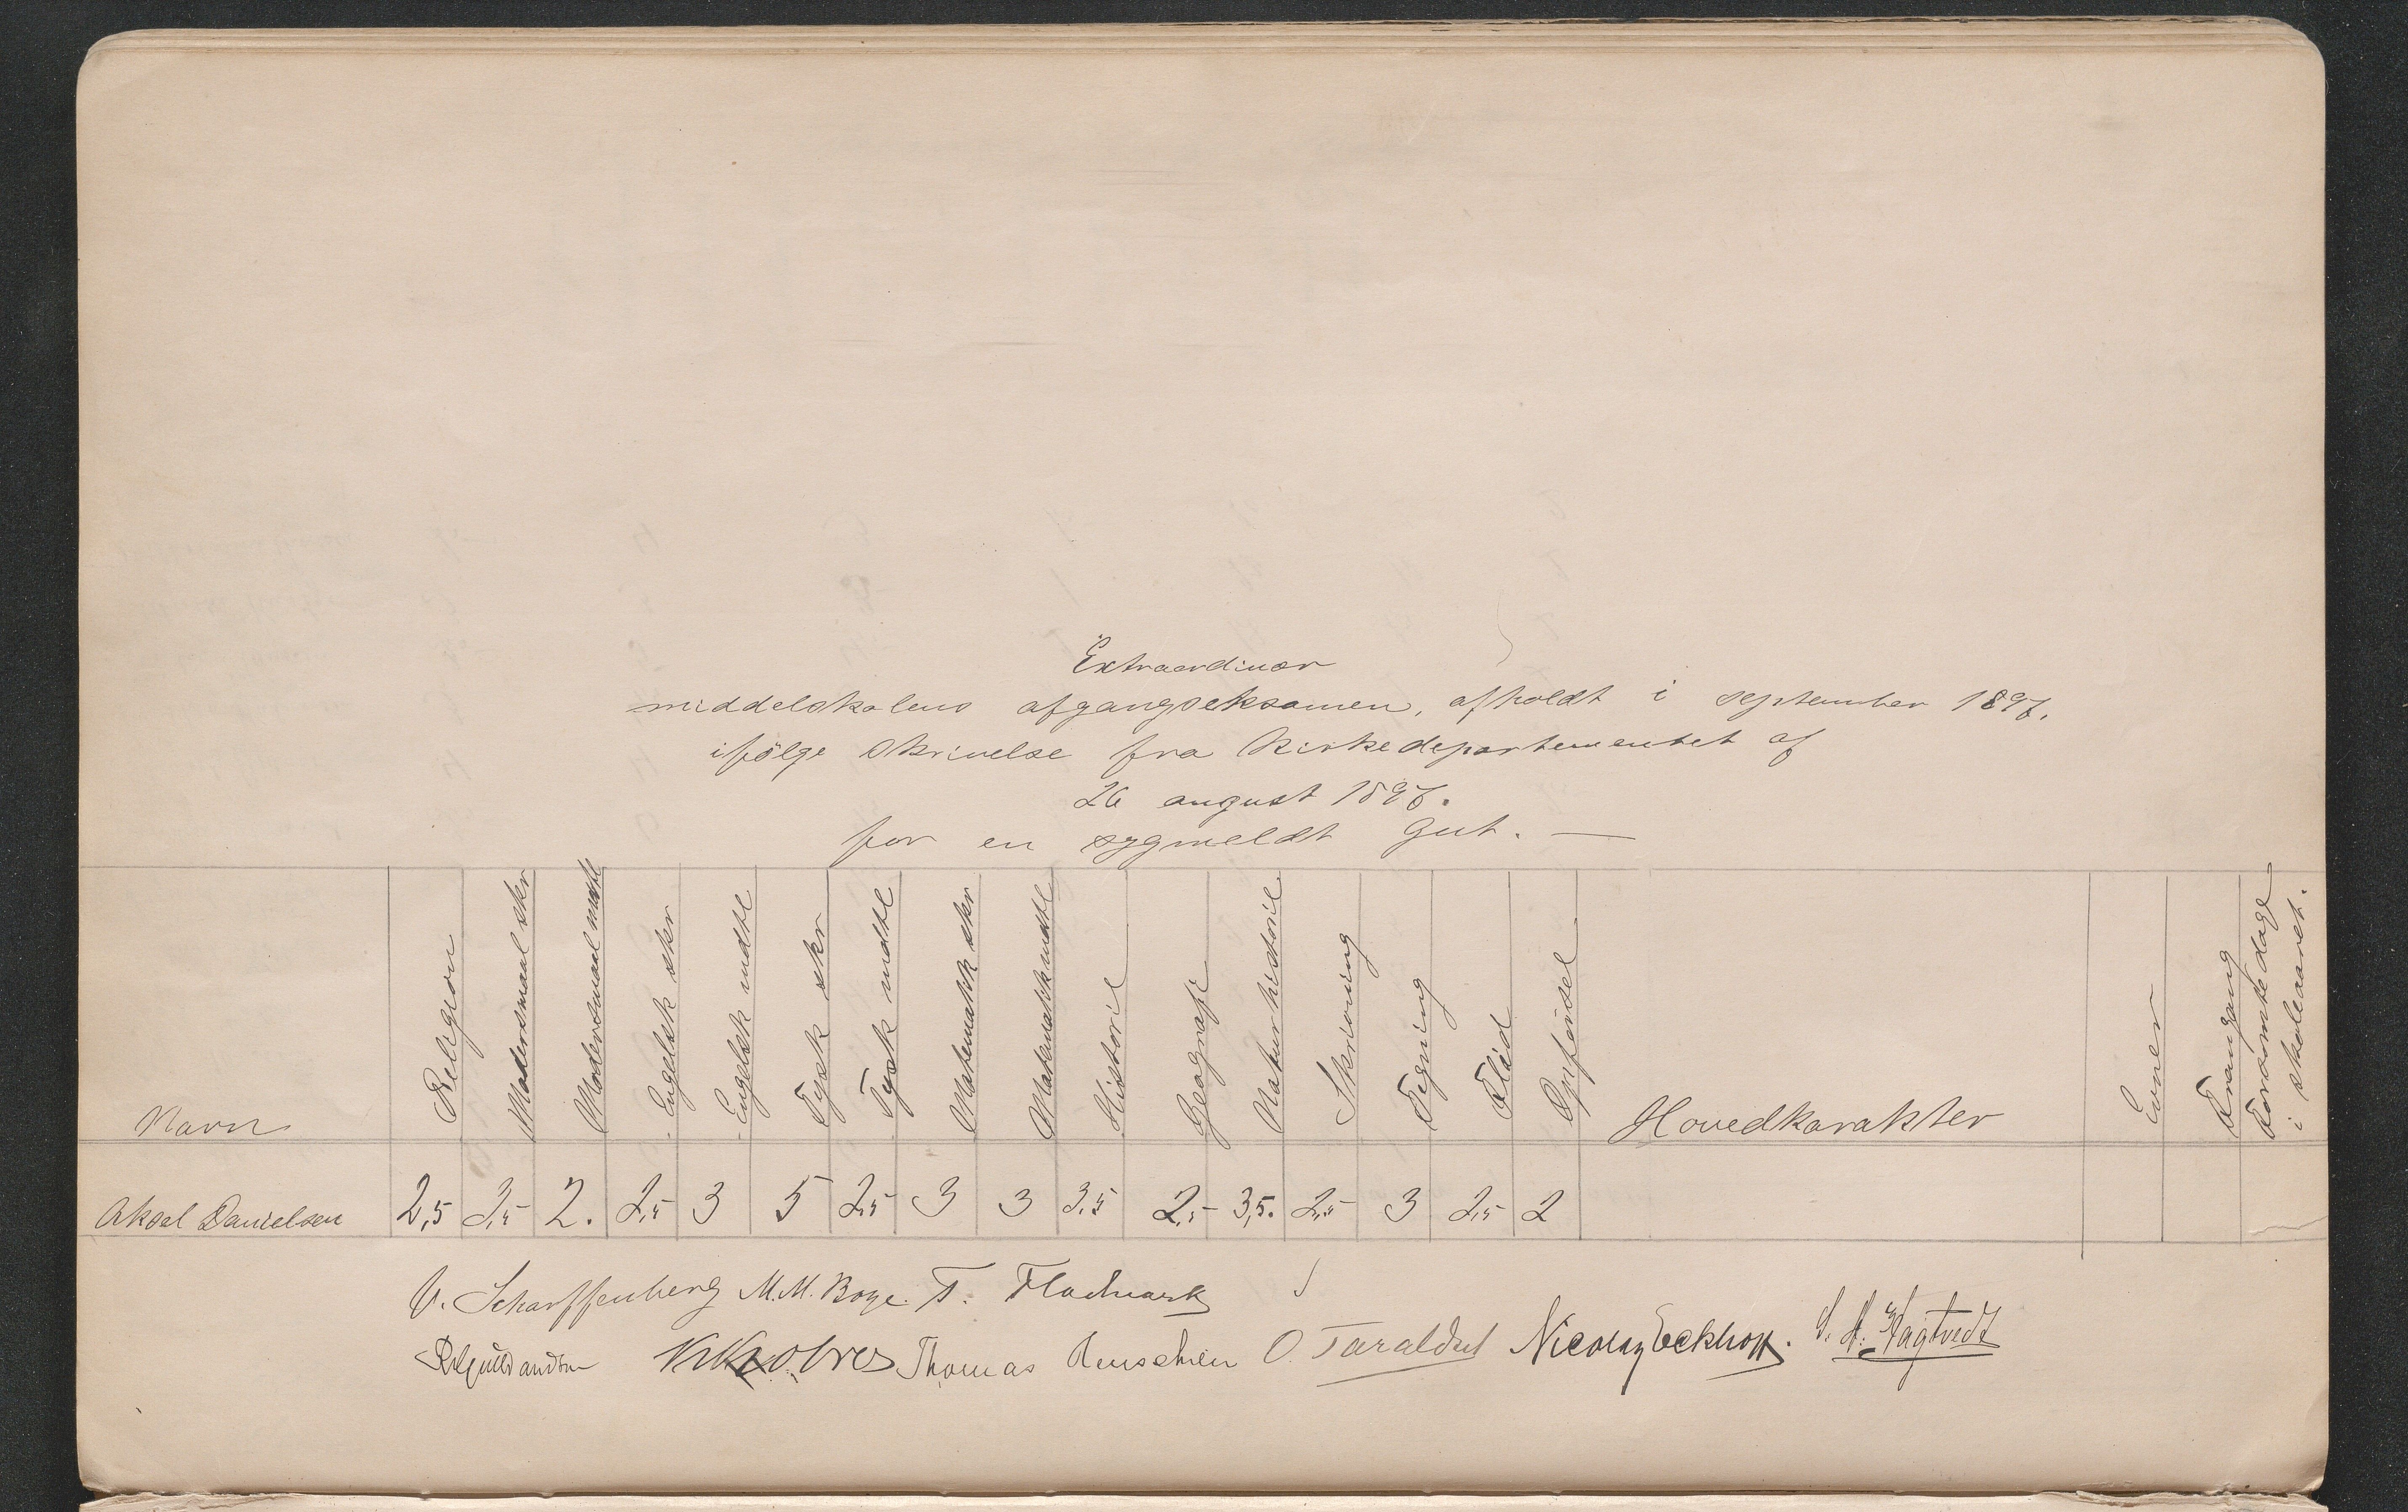 Extraordinær
middelskolens afgangseksamen, afholdt i september 1897.
ifölge skrivelse fra Kirkedepartementet af
26 august 1897.
for en sygmeldt gut. —
Navn Religion Modersmaal skr Modersmaal mdtl Engelsk skr Engelsk mdtl Tysk skr Tysk mdtl Matematikk skr Matematikk mdtl Historie Geografi Naturhistorie Skrivning Tegning Flid Opförsel Hovedkarakter Evner Fremgang Forsömte dage i skoleaaret.
Aksel Danielsen 2,5 3,5 2. 2,5 3 5 2,5 3 3 3,5 2,5 3,5. 2,5 3 2,5 2
V. Scharffenberg M.M. Boye. T. Fladmark
Thomas O. Taraldset Nicolay Eckhoff. S. A. Hagtvedt